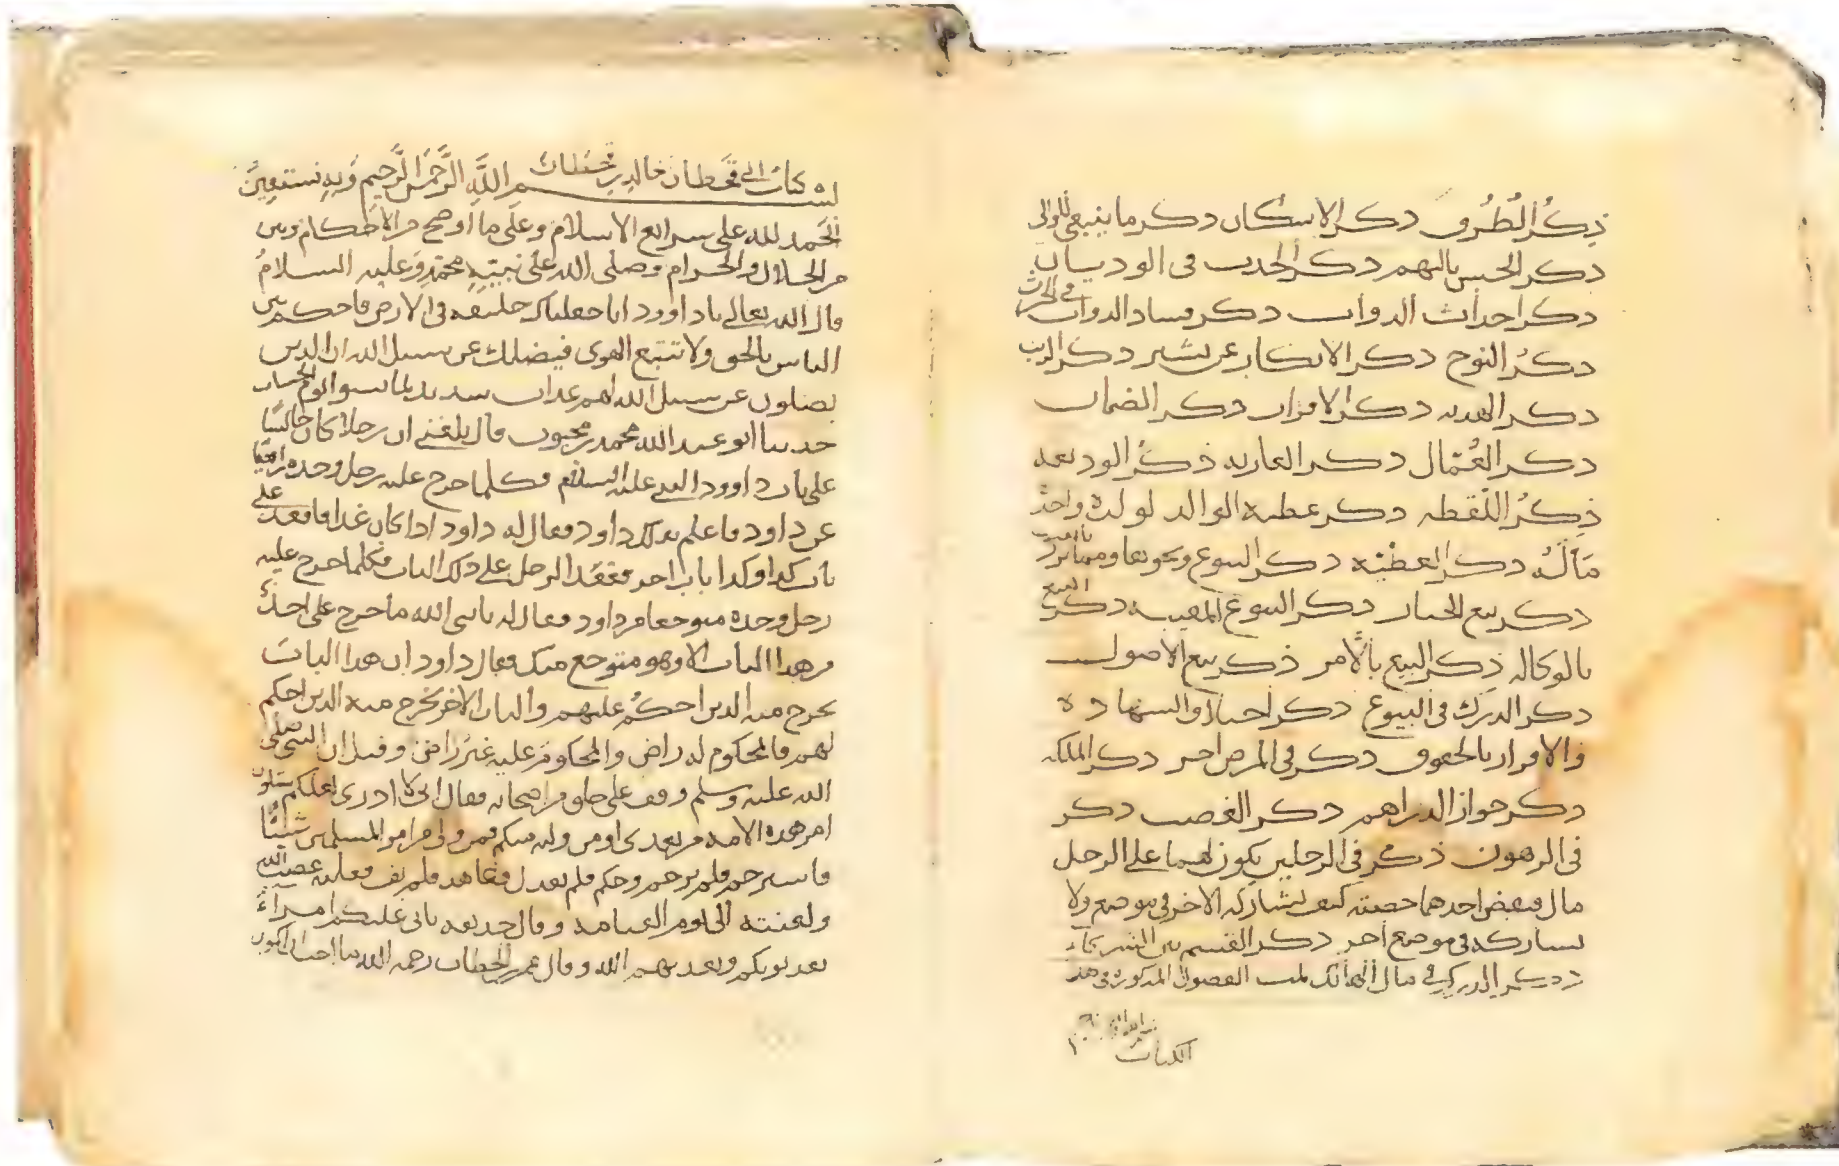 ذِكرُ الطُّرُق ذكر الاسكان ذكر ما ينبغي للوالي
ذكر الحبس بالتهم ذكر الحدث في الوديان
ذكر احداث الدواب ذكر فساد الدواب في الحرث
ذكرُ النوح ذكر الانكار عن ذكر
ذكر الهدنه ذكر الاقرار ذكر الضمان
ذكر العُمّال ذكر العاريه ذكرُ الوديعه
ذِكرُ اللّقطه ذكر عطيه الوالد لولده واخذ
مَالَهُ ذكر العطيّه ذكر البيوع ونحوها ومما يرد بالعيب
ذكر بيع الخيار ذكر البيوع المعيبه ذكر البيع
بالوكاله ذِكر البيع بالأمر ذكر بيع الاصول
ذكر الدرك في البيوع ذكر اختلاف الشهاده
والاقرار بالحقوق ذكر في المرض اخر ذكر الملكه
ذكر جواز الدراهم ذكر الغصب ذكر
في الرهون ذكر في الرجلين يكون لهما على الرجل
مال فيقبض احدهما حصته كيف يشاركه الاخر في موضع ولا
يشاركه في موضع اخر ذكر القسم بين الشركاء
ذكر في مال الهالك تمت الفصول المذكوره في هذا
الكتاب
كتاب ابي قحطان خالد بن قحطان
بسم اللَّهِ الرَّحمنِ الرَّحيم وَبِهِ نستعِينُ
الحَمد لله على شرايع الاسلام وعَلى ما اوضح من الاحكام وبين
من الحلال والحرام وصلى الله على نبيِّهِ محمّدٍ وَعَليه السلامُ
قال الله تعالى يا داوود انا جعلناك خليفه في الارض فاحكم بين
الناس بالحق ولا تتبع الهوى فيضلك عن سبيل الله ان الذين
يضلون عن سبيل الله لهم عذاب شديد بما نسوا يوم الحساب
حدثنا ابو عبد الله محمد بن محبوب قال بلغني ان رجلا كان جالسًا
على باب داوود النبي عليه السلام فكلما خرج عليه رجل وحده راضيًا
عن داود فاعلم بذلك داود فقال له داود اذا كان غدا فاقعد على
باب كذا وكذا باب اخر فقعد الرجل على ذلك الباب فكلما خرج عليه
رجل وحده متوجعا من داود فقال له يا نبي الله ما خرج علي احدٌ
من هذا الباب الا وهو متوجع منك فقال داود ان هذا الباب
يخرج منه الذين احكمُ عليهم والباب الاخر يخرج منه الذين احكم
لهم فالمحكوم له راض والمحكومَ عليه غيرَ راضى وقيل ان النبي صلى
الله عليه وسلم وقف على من اصحابه فقال اني لا ادري لعلكم ستلون
امر هذه الامه من بعدي او من وليه منكم فمن ولي من امر المسلمين شيئًا
فاسترحم فلم يرحم وحكم فلم يعدل وعاهد فلم يف فعليه غضب الله
ولعنته الى يوم القيامه وقال حذيفه ياتي عليكم امراءُ
يعذبونكم ويعذبهم الله وقال عمر بن الخطاب رحمه الله ما احب ان اكون